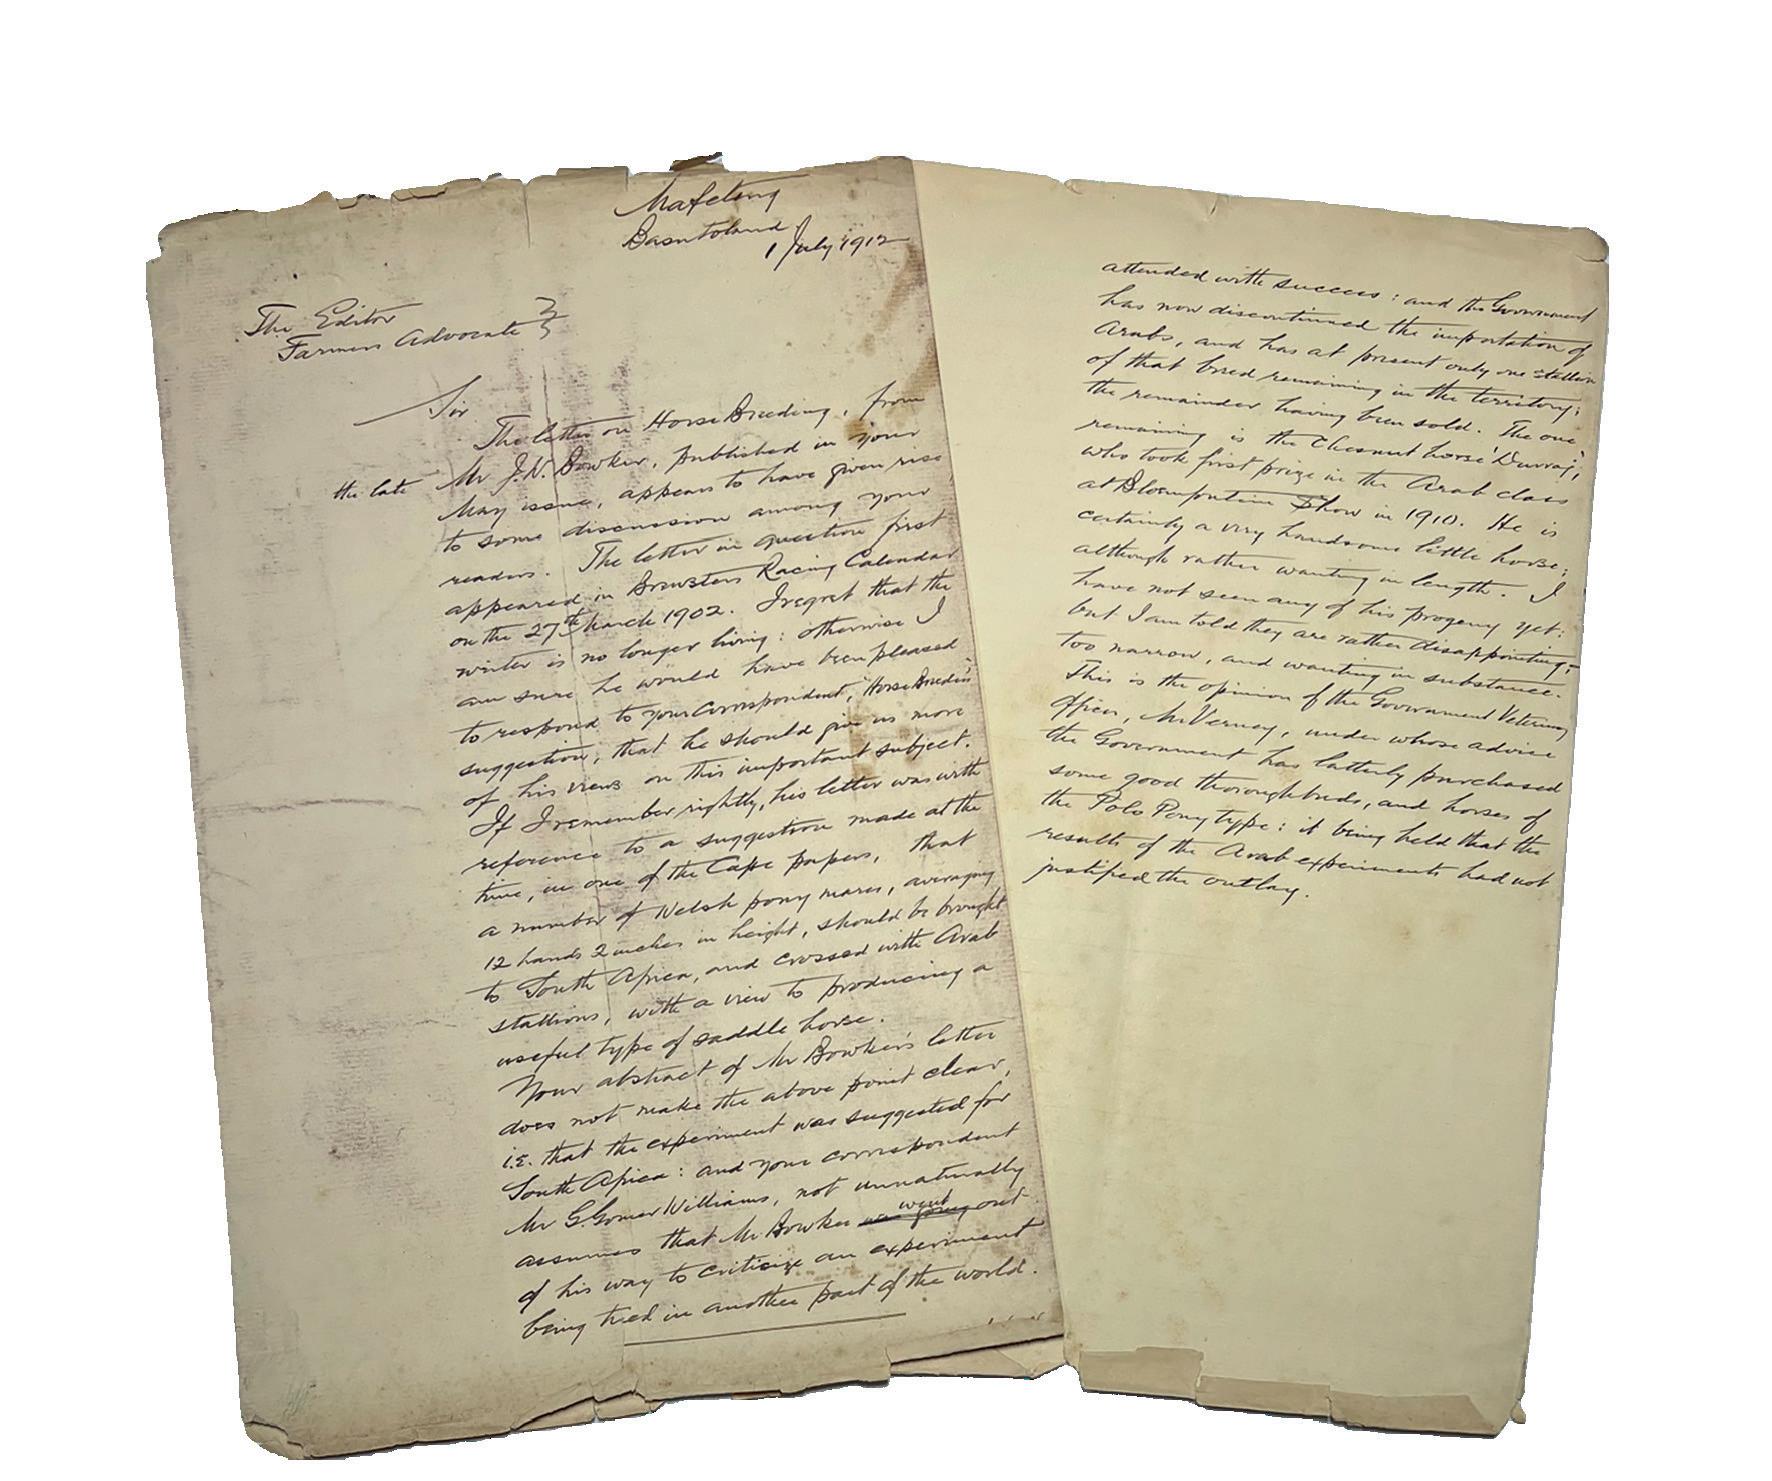 Mafeteng
Basutoland
1 July 1912
The Editor
Farmers Advocate
Sir
The letter on Horse Breeding, from
the late Mr J.N. Bowker, published in your
May issue, appears to have given rise
to some discussion among your
readers. The letter in question first
appeared in Brewsters Racing Calendar
on the 27th March 1902. I regret that the
writer is no longer living: otherwise I
am sure he would have been pleased
to respond to your correspondent, "Horse Breeder's"
suggestion, that he should give us more
of his views on this important subject.
If I remember rightly, his letter was with
reference to a suggestion made at the
time, in one of the Cape papers, that
a number of Welsh pony mares, averaging
12 hands 2 inches in height, should be brought
to South Africa, and crossed with Arab
stallions, with a view to producing a
useful type of saddle horse.
Your abstract of Mr Bowker's letter
does not make the above point clear,
i.e. that the experiment was suggested for
South Africa: and your correspondent
Mr G. Gomer Williams, not unnaturally
assumes that Mr Bowker was going went out
of his way to criticize an experiment
being tried in another part of the world.
attended with success: and the Government
has now discontinued the importation of
Arabs, and has at present only one stallion
of that breed remaining in the territory;
the remainder having been sold. The one
remaining is the Chesnut horse 'Durraj',
who took first prize in the Arab class
at Bloemfontein Show in 1910. He is
certainly a very handsome little horse;
although rather wanting in length. I
have not seen any of his progeny yet;
but I am told they are rather disappointing;
too narrow, and wanting in substance.
This is the opinion of the Government Veterinary
Officer, Mr Verney, under whose advise
the Government has latterly purchased
some good thoroughbreds, and horses of
the Polo Pony type: it being held that the
results of the Arab experiments had not
justified the outlay.